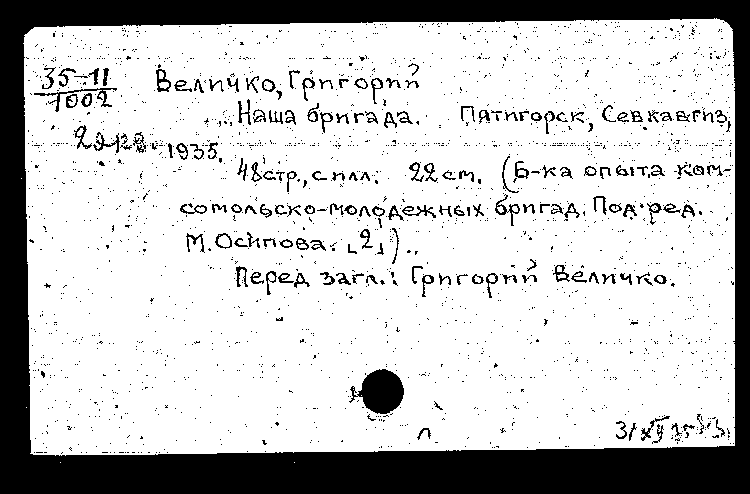 35-11 Величко, Григорий
1002 Наша бригада. Пятигорск, Севкавгиз,
1935.
48 стр., с илл. 22 см. (Б-ка опыта ком-
сомольско-молодежных бригад. Под ред.
М. Осипова. [2])..
Перед загл.: Григорий Величко.
п
31 XII